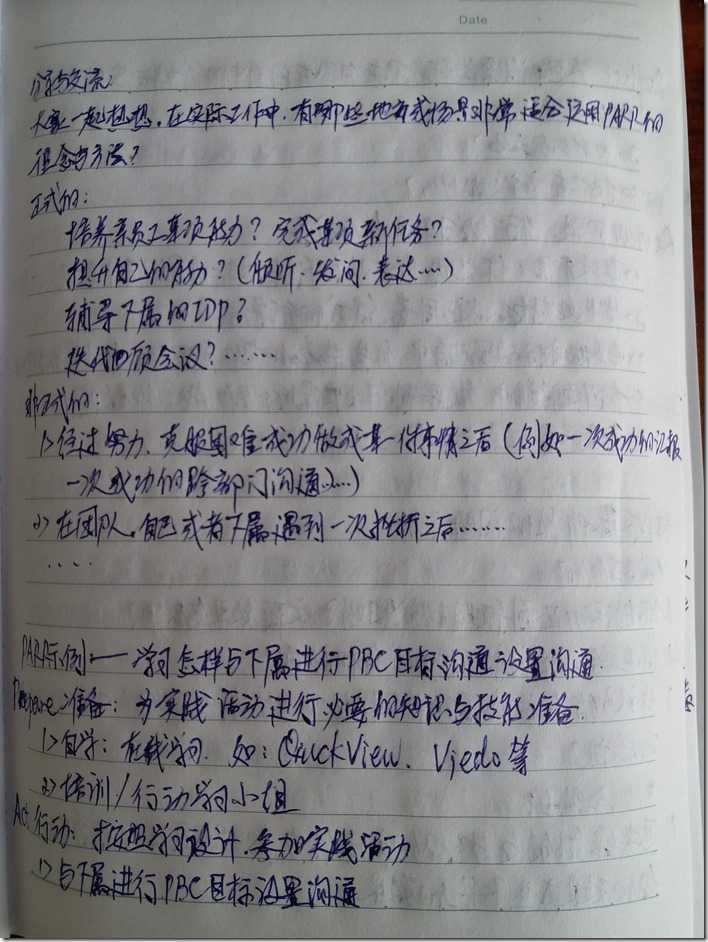 Date
分享与交流:
大家一起想想,在实际工作中,有哪些地方或场景非常适合运用PARR的
理念与方法?
正式的:
培养亲员工某项能力?完成某项新任务?
提升自己的能力?(倾听、发问、表达……)
辅导下属的IDP?
迭代回顾会议?……
非正式的:
1>经过努力、克服困难成功做成某一件事情之后(例如一次成功的汇报
一次成功的跨部门沟通……)
2>在团队、自己或者下属遇到一次挫折之后……
....
PARR示例——学习怎样与下属进行PBC目标沟通设置沟通.
Prepare准备:为实践活动进行必要的知识与技能准备.
1>自学:在线学习.如:QuickView、Viedo等
2>培训/行动学习小组
Act行动:按照学习设计、参加实践活动
1>与下属进行PBC目标设置沟通